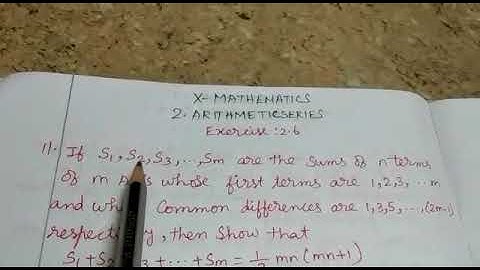 X- MATHEMATICS
2. ARITHMETIC SERIES
Exercise: 2.6
11. If S₁, S₂, S₃, ..., Sm are the sums of n terms
of m A.P.s whose first terms are 1, 2, 3, ... m
and Common differences are 1, 3, 5, ..., (2m-1)
respectively, then Show that
S₁ + S₂ + S₃ + ... + Sm = 1/2 mn (mn+1)